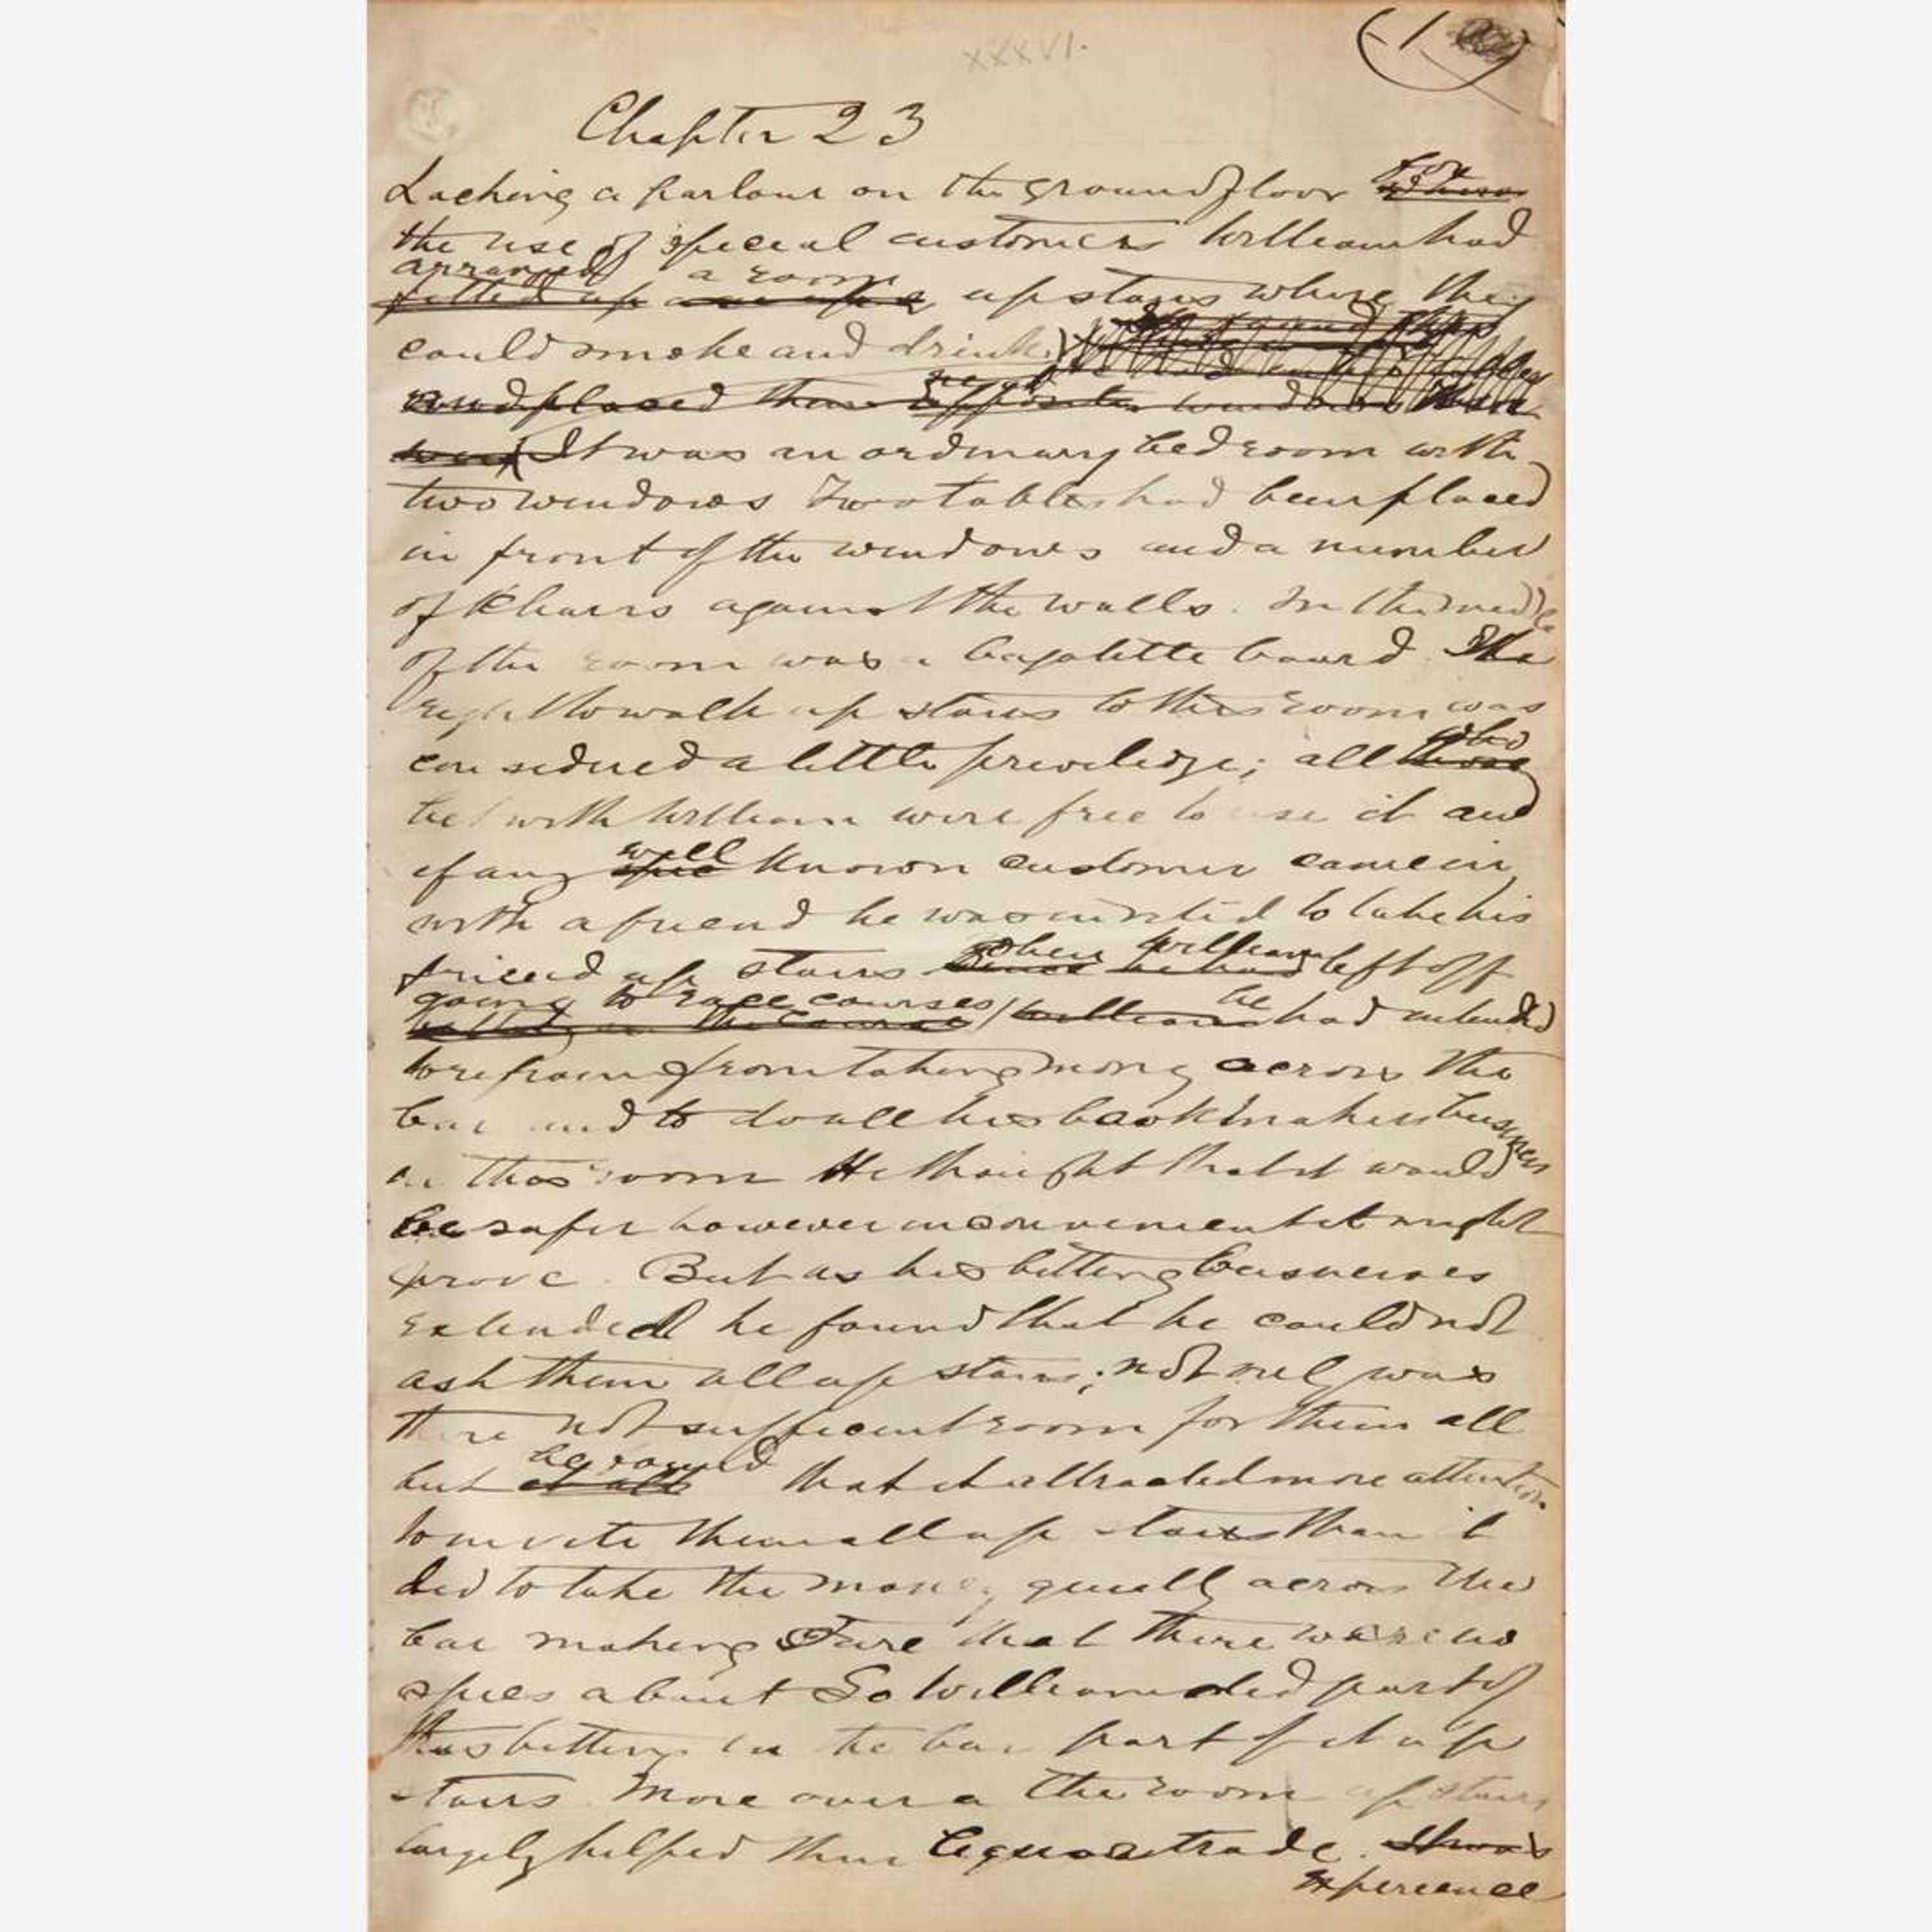 XXXVI.
1
Chapter 23
Lacking a parlour on the ground floor for
the use of special customers William had
arranged a room
fitted up upstairs where they
could smoke and drink.
and placed them opposite windows There
were It was an ordinary bedroom with
two windows Two tables had been placed
in front of the windows and a number
of Chairs against the walls. In the middle
of the room was a bagalitte board. The
right to walk up stairs to this room was
who
considered a little priviledge; all those
bet with William were free to use it and
well
if any known customer came in
with a friend he was invited to take his
when William
friend up stairs since he had left off
going to race courses he
betting on the course William had intended
to refrain from taking money across the
bar and to do all his bookmakers business
in this room He thought that it would
be safer however inconvenient it might
prove. But as his betting businesses
extended he found that he could not
ask them all up stairs; not only was
there not sufficient room for them all
he found
but that it attracted more attention
to invite them all up stairs than it
did to take the money quietly across the
bar making sure that there were no
spies about So William did part of
his betting in the bar part of it up
stairs. More over a the room up stairs
largely helped their liquor trade. It was
Experience